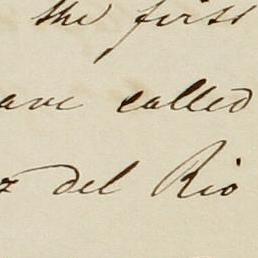 the first
ave called
z del Rio